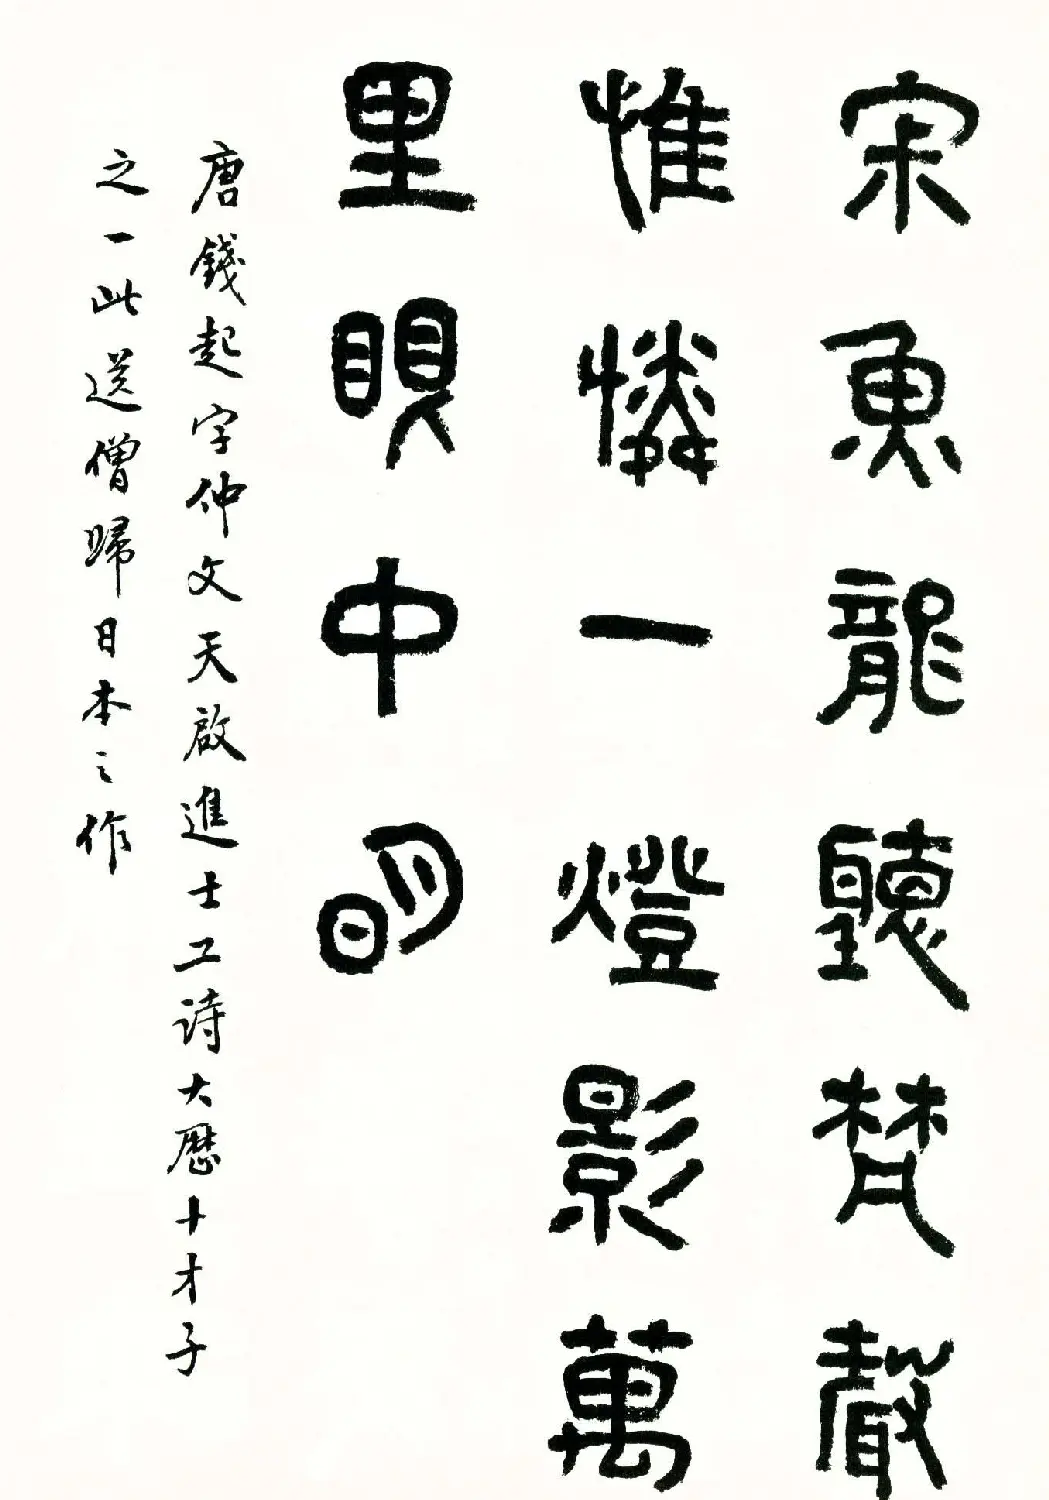 宗魚龍聽梵聲
惟憐一燈影萬
里眼中明
唐錢起字仲文天啟進士工詩大歷十才子
之一此送僧歸日本之作